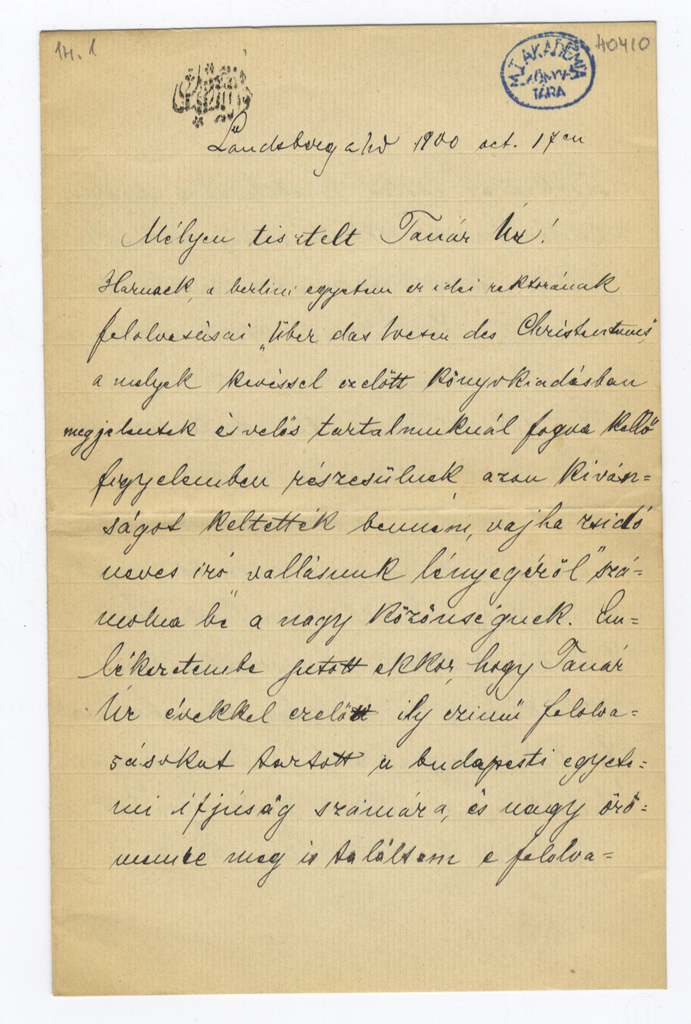 14. 1
M. T. AKADÉMIA KÖNYVTÁRA
40410
Landsberg a/W 1900 oct. 17en
Mélyen tisztelt Tanár Úr!
Harnack, a berlini egyetem ez idei rektorának
felolvasásai „Über das Wesen des Christentums",
a melyek kevéssel ezelőtt könyvkiadásban
megjelentek és velős tartalmuknál fogva kellő
figyelemben részesülnek azon kíván=
ságot keltették bennem, vajha zsidó
neves író vallásunk lényegéről szá=
molna be a nagy közönségnek. Em=
lékezetembe jutott ekkor, hogy Tanár
Úr évekkel ezelőtt ily czimű felolva=
sásokat tartott a budapesti egyete=
mi ifjúság számára, és nagy örö=
memre meg is találtam e felolva=